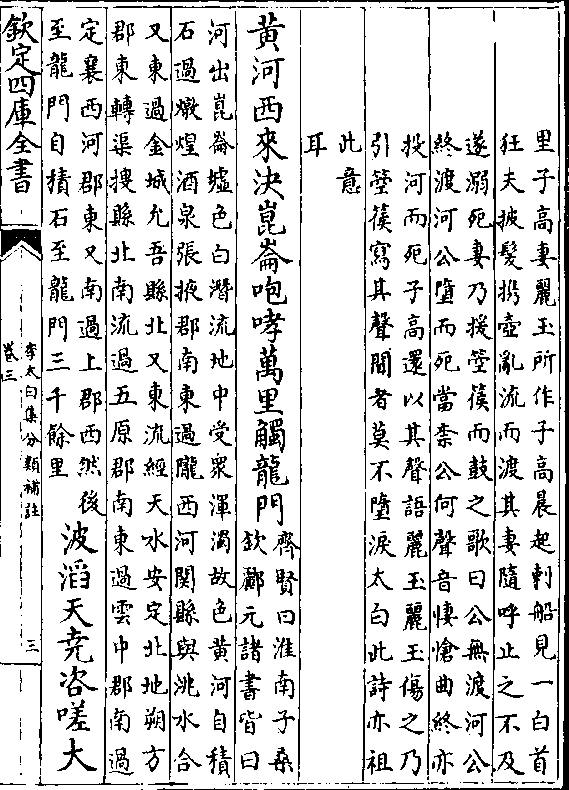 里子高妻麗玉所作子高晨起刺船見一白首
狂夫披髮攜壺亂流而渡其妻隨呼止之不及
遂溺死妻乃援箜篌而鼓之歌曰公無渡河公
終渡河公墮而死當柰公何聲音悽愴曲終亦
投河而死子高還以其聲語麗玉麗玉傷之乃
引箜篌寫其聲聞者莫不墮淚太白此詩亦祖
此意
耳
黃河西來決崑崙咆哮萬里觸龍門
齊賢曰淮南子桑
欽酈元諸書皆曰
河出崑崙墟色白潛流地中受衆渾濁故色黃河自積
石過燉煌酒泉張掖郡南東過隴西河關縣與洮水合
又東過金城允吾縣北又東流經天水安定北地朔方
郡東轉渠搜縣北南流過五原郡南東過雲中郡南過
定襄西河郡東又南過上郡西然後
至龍門自積石至龍門三千餘里
波滔天堯咨嗟大
欽定四庫全書
李太白集分類補註
卷三
三